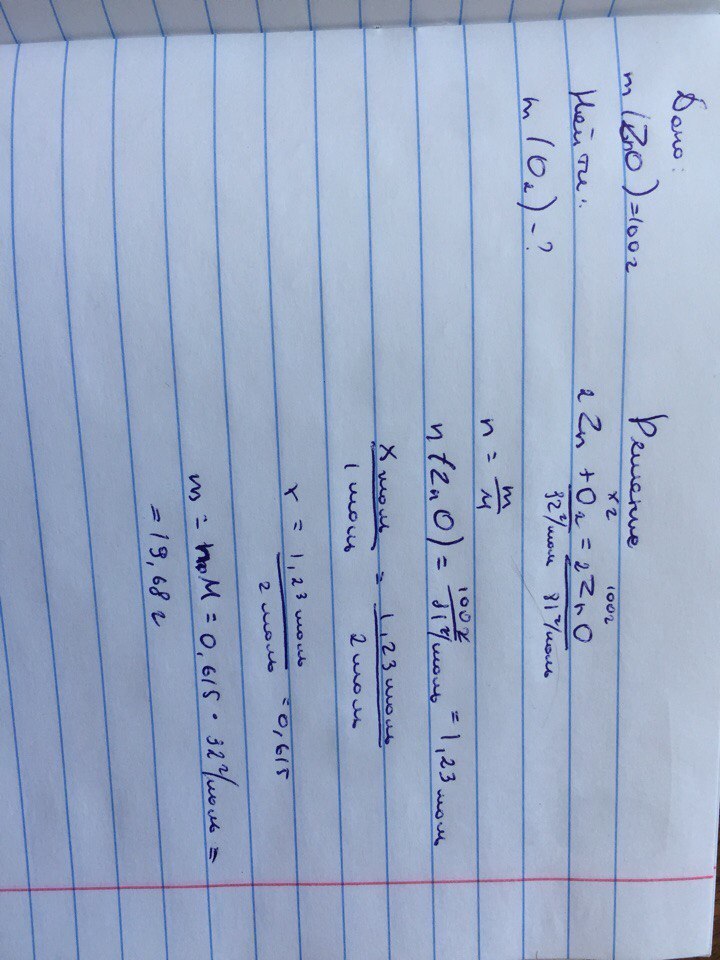 Дано:
m(ZnO)=100г
Найти:
m(O₂)-?
Решение
xг 100г
2Zn + O₂ = 2ZnO
32г/моль 81г/моль
n = m/M
n(ZnO) = 100г/81г/моль = 1,23 моль
x моль/1 моль = 1,23 моль/2 моль
x = 1,23 моль/2 моль = 0,615
m = n·M = 0,615 · 32г/моль =
= 19,68г